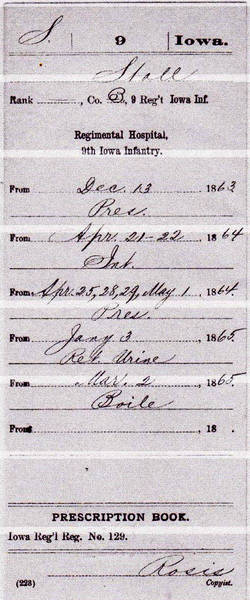 S. | 9 | Iowa.
Stall
Rank ——, Co. B, 9 Reg't Iowa Inf.
Regimental Hospital,
9th Iowa Infantry.
From Dec. 13 1863
Pres.
From Apr. 21-22 1864
Int.
From Apr. 25, 28, 29, May 1 1864.
Pres.
From Jany 3 1865.
Ret. Urine
From Mar. 2 1865.
Boile
From , 18 .
PRESCRIPTION BOOK.
Iowa Reg'l Reg. No. 129.
Rosis
(223) Copyist.